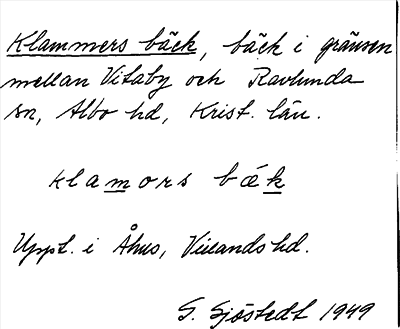 Klammers bäck, bäck i gränsen
mellan Vitaby och Ravlunda
sn, Albo hd, Krist. län.
klamors bæk
Uppt. i Åhus, Villands hd.
G. Sjöstedt 1949